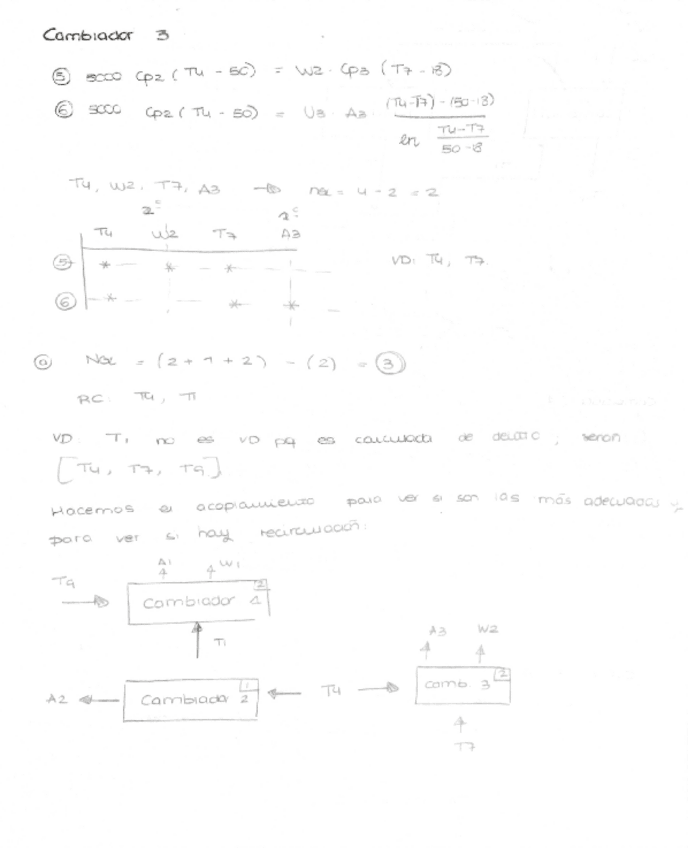 Cambiador 3
⑤ 5000 Cp2 (T4 - 50) = W2 · Cp3 (T7 - 18)
⑥ 5000 Cp2 (T4 - 50) = U3 · A3 · (T4-T7) - (50-18)
ln T4-T7
50-18
T4, W2, T7, A3 → = 4 - 2 = 2
2º 1º
T4 W2 T7 A3
⑤ * * *
VD: T4, T7
⑥ * * *
ⓐ = (2 + 1 + 2) - (2) = ③
RC: T4, T1
VD: T1 no es VD pq es calculada de , seran
[T4, T7, T9]
Hacemos el acoplamiento para ver si son las más adecuadas y
para ver si hay recirculación:
A1 W1
T9
2
Cambiador 1
T1
A3 W2
2
Comb. 3
1
A2 Cambiador 2 T4
T7